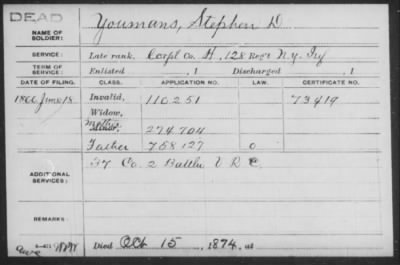 DEAD
NAME OF SOLDIER: Youmans, Stephen D.
SERVICE: Late rank, Corpl Co. H, 128 Reg't N.Y. Inf
TERM OF SERVICE: Enlisted , 1 Discharged , 1
DATE OF FILING. CLASS. APPLICATION NO. LAW. CERTIFICATE NO.
1866 June 18 Invalid, 110251 73419
Widow,
Minor, Mother 274704
Father 768127 0
ADDITIONAL SERVICES: 37 Co. 2 Battln V R C.
REMARKS:
Died Oct 15, 1874, at